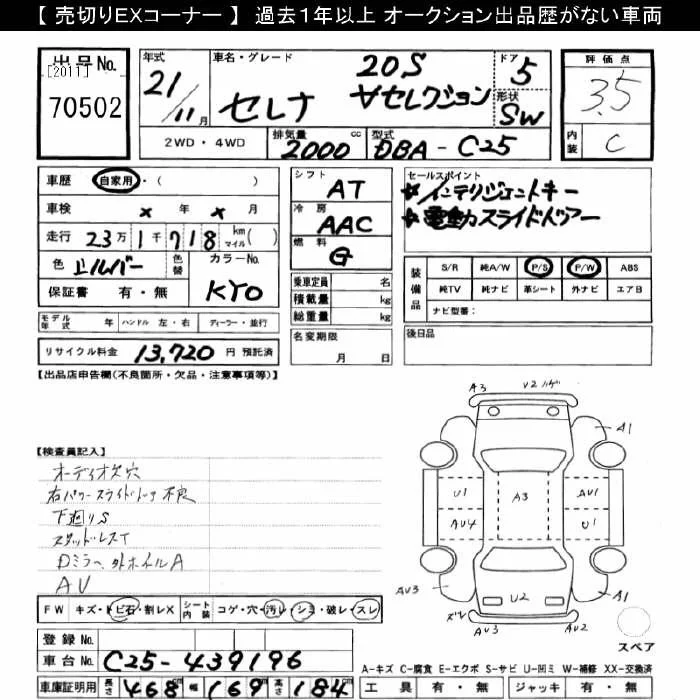 【 売切りEXコーナー 】 過去１年以上 オークション出品歴がない車両
出品No.
[2011]
70502
年式 21/11月
車名・グレード セレナ 20S Vセレクション
ドア 5
形状 SW
評価点 3.5
内装 C
2WD・4WD
排気量 2000 cc
型式 DBA-C25
車歴 自家用・( )
車検 × 年 × 月
走行 23万1千718 km マイル( )
色 シルバー 色替
カラーNo. KY0
保証書 有・無
シフト AT
冷房 AAC
燃料 G
乗車定員 名
積載量 kg
総重量 kg
名変期限 月 日
セールスポイント
★インテリジェントキー
★電動スライドドアー
装備品
S/R 純A/W P/S P/W ABS
純TV 純ナビ 革シート 外ナビ エアB
ナビ型番：
後日品
モデル年式 年 ハンドル 左・右 ディーラー・並行
リサイクル料金 13,720 円 預託済
【出品店申告欄(不良箇所・欠品・注意事項等)】
【検査員記入】
オーディオ欠穴
右パワースライドドア不良
下廻りS
スタッドレスT
Dミラー、外ホイルA
AV
A3 V2ハゲ
A1
U1 A3 AV1
AV4 U1
AV3 U2 A1
ズレ AV3 AV2
スペア
FW キズ・トビ石・割レX シート内装 コゲ・穴・汚レ・シミ・破レ・スレ
登録No.
車台No. C25-439196
車庫証明用 長さ 468cm 幅 169cm 高さ 184cm
A-キズ C-腐食 E-エクボ S-サビ U-凹ミ W-補修 XX-交換済
工具 有・無 ジャッキ 有・無